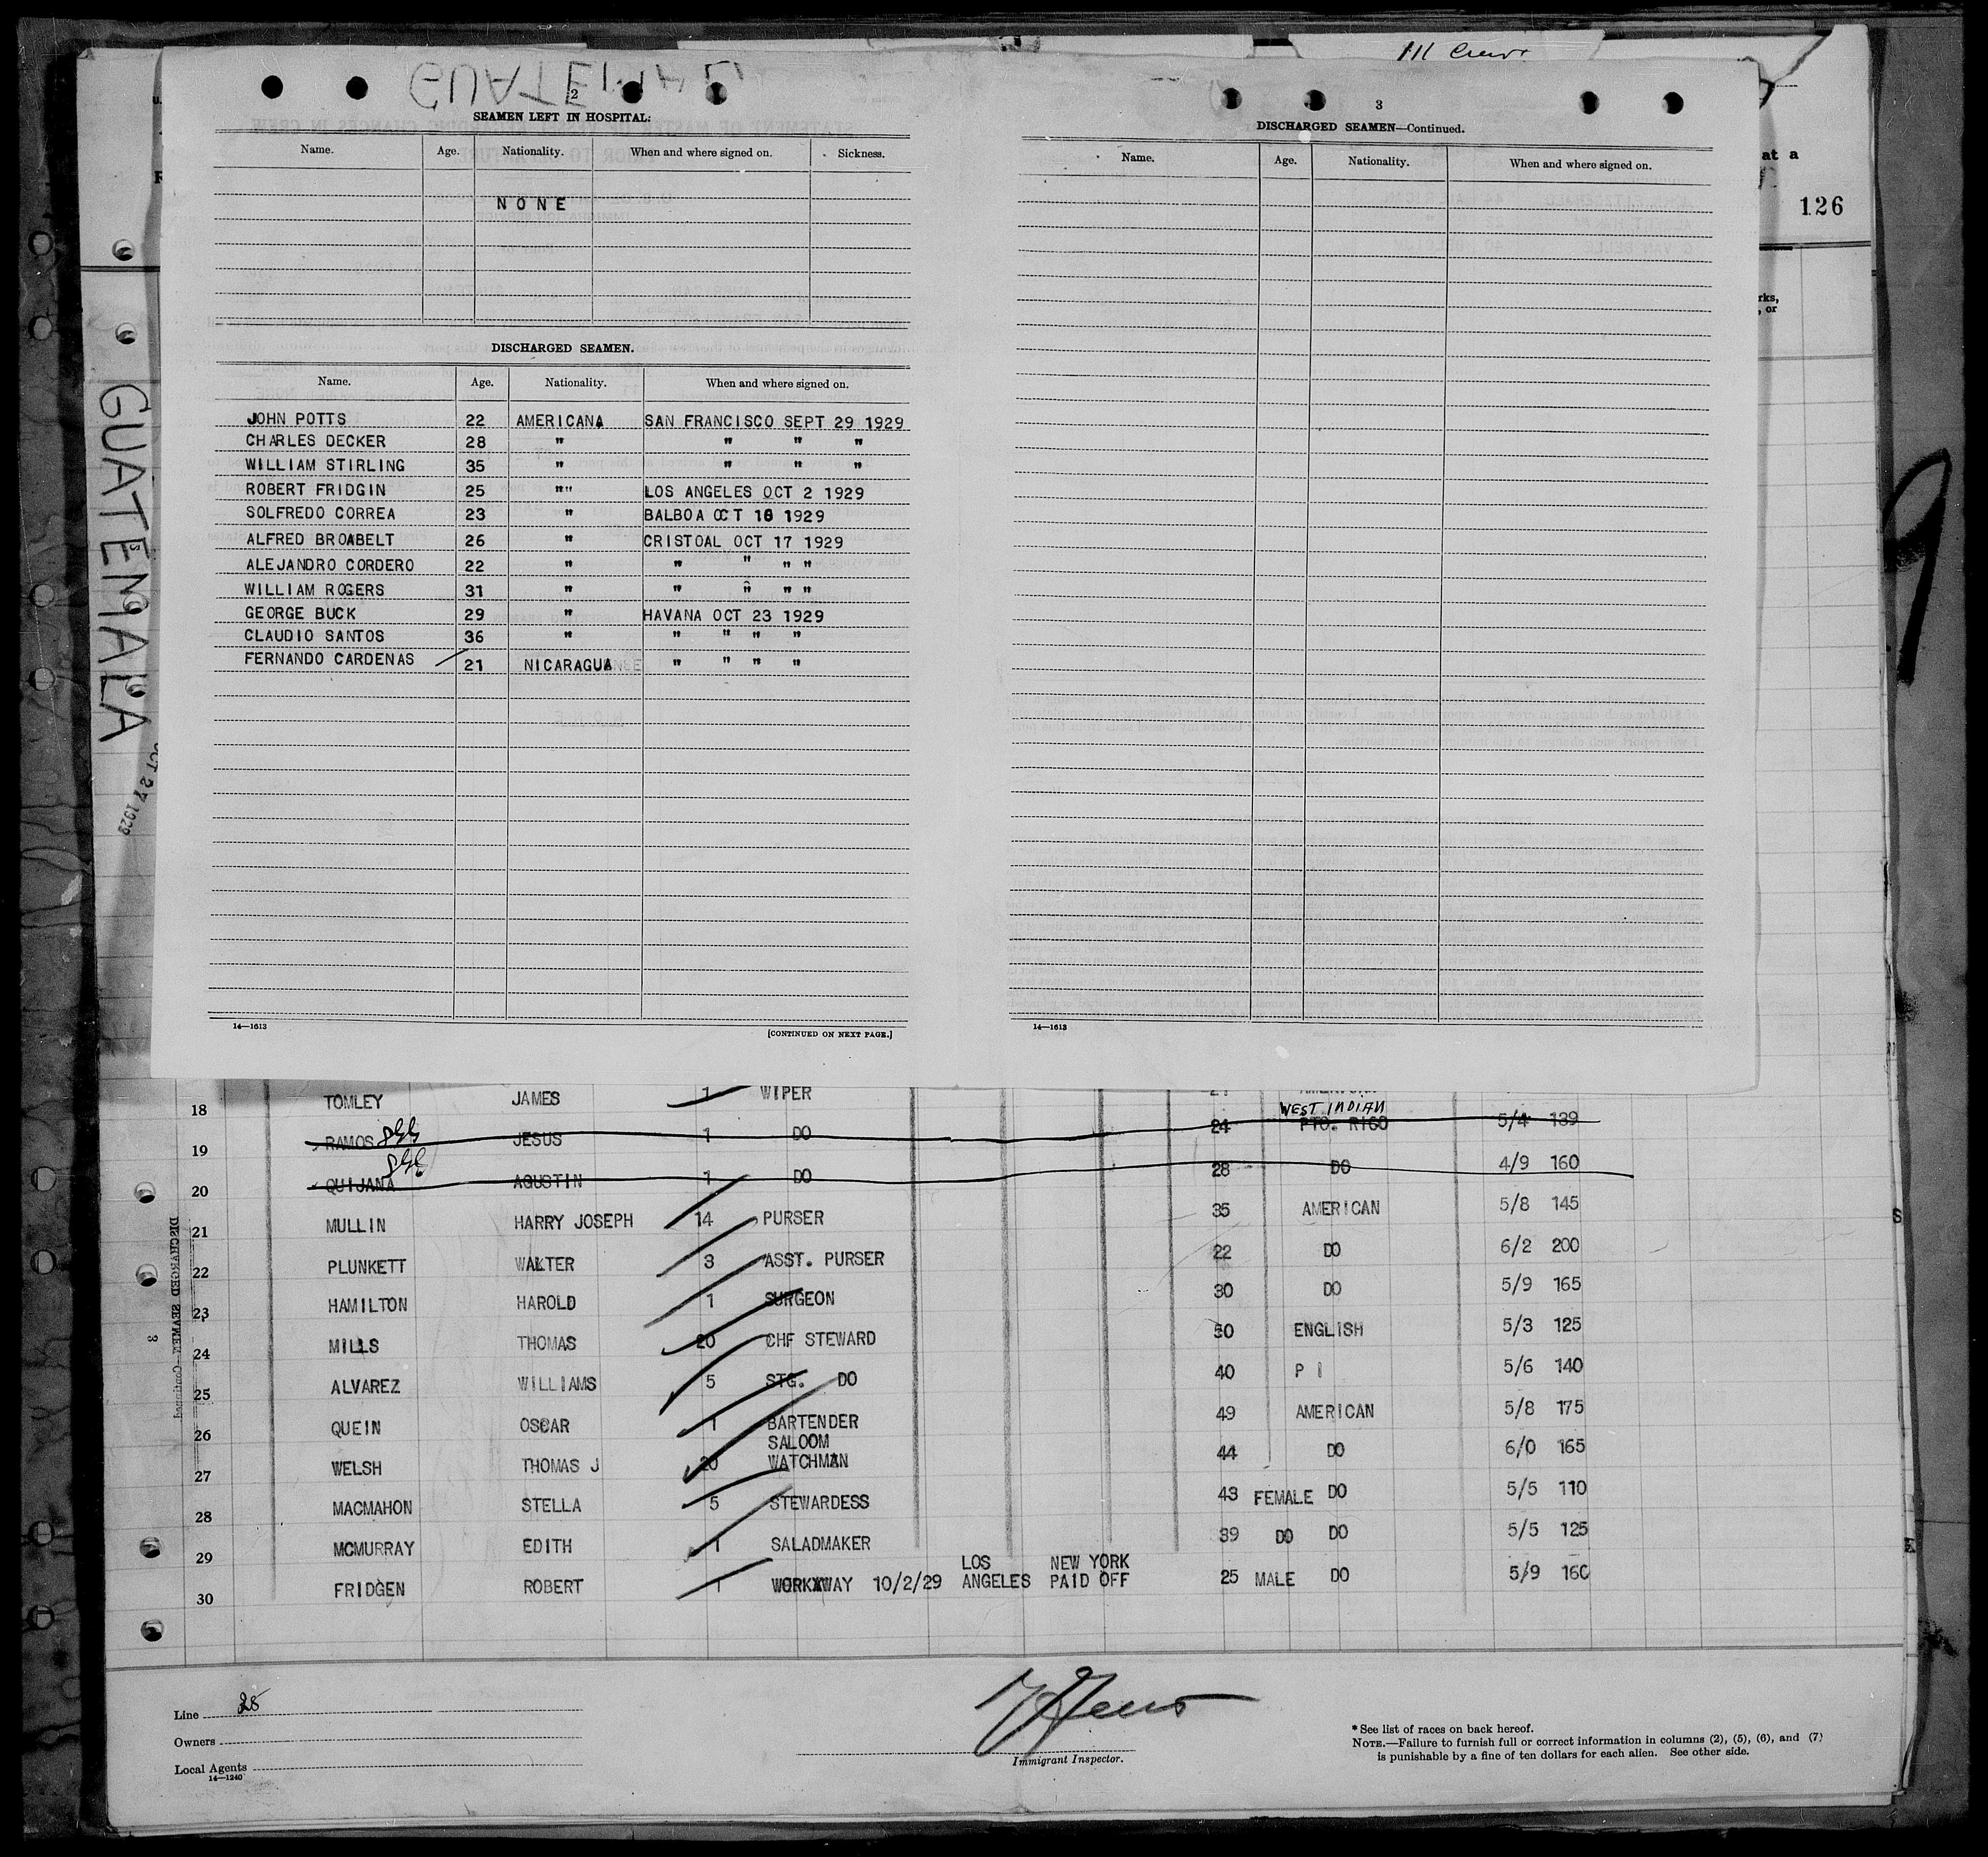 111 Crews
GUATEMALA
2
SEAMEN LEFT IN HOSPITAL:
Name. Age. Nationality. When and where signed on. Sickness.
NONE
DISCHARGED SEAMEN.
Name. Age. Nationality. When and where signed on.
JOHN POTTS 22 AMERICANA SAN FRANCISCO SEPT 29 1929
CHARLES DECKER 28 " " " "
WILLIAM STIRLING 35 " " " "
ROBERT FRIDGIN 25 "" LOS ANGELES OCT 2 1929
SOLFREDO CORREA 23 " BALBOA OCT 16 1929
ALFRED BROABELT 26 " CRISTOAL OCT 17 1929
ALEJANDRO CORDERO 22 " " " " "
WILLIAM ROGERS 31 " " " " "
GEORGE BUCK 29 " HAVANA OCT 23 1929
CLAUDIO SANTOS 36 " " " " "
FERNANDO CARDENAS 21 NICARAGUA " " " "
14—1613 [CONTINUED ON NEXT PAGE.]
3
DISCHARGED SEAMEN—Continued.
Name. Age. Nationality. When and where signed on.
14—1613
at a
126
rks,
, or
GUATEMALA
OCT 27 1929
DISCHARGED SEAMEN—Continued
3
18 TOMLEY JAMES 1 WIPER
WEST INDIAN
19 RAMOS JESUS 1 DO 24 PTO. RICO 5/4 139
20 QUIJANA AGUSTIN 1 DO 28 DO 4/9 160
21 MULLIN HARRY JOSEPH 14 PURSER 35 AMERICAN 5/8 145
22 PLUNKETT WALTER 3 ASST. PURSER 22 DO 6/2 200
23 HAMILTON HAROLD 1 SURGEON 30 DO 5/9 165
24 MILLS THOMAS 20 CHF STEWARD 50 ENGLISH 5/3 125
25 ALVAREZ WILLIAMS 5 STG. DO 40 P I 5/6 140
26 QUEIN OSCAR 1 BARTENDER 49 AMERICAN 5/8 175
SALOOM
27 WELSH THOMAS J 20 WATCHMAN 44 DO 6/0 165
28 MACMAHON STELLA 5 STEWARDESS 43 FEMALE DO 5/5 110
29 MCMURRAY EDITH 1 SALADMAKER 39 DO DO 5/5 125
LOS NEW YORK
30 FRIDGEN ROBERT 1 WORKAWAY 10/2/29 ANGELES PAID OFF 25 MALE DO 5/9 160
Line 28
Owners
Local Agents
14—1240
Immigrant Inspector.
* See list of races on back hereof.
NOTE.—Failure to furnish full or correct information in columns (2), (5), (6), and (7)
is punishable by a fine of ten dollars for each alien. See other side.